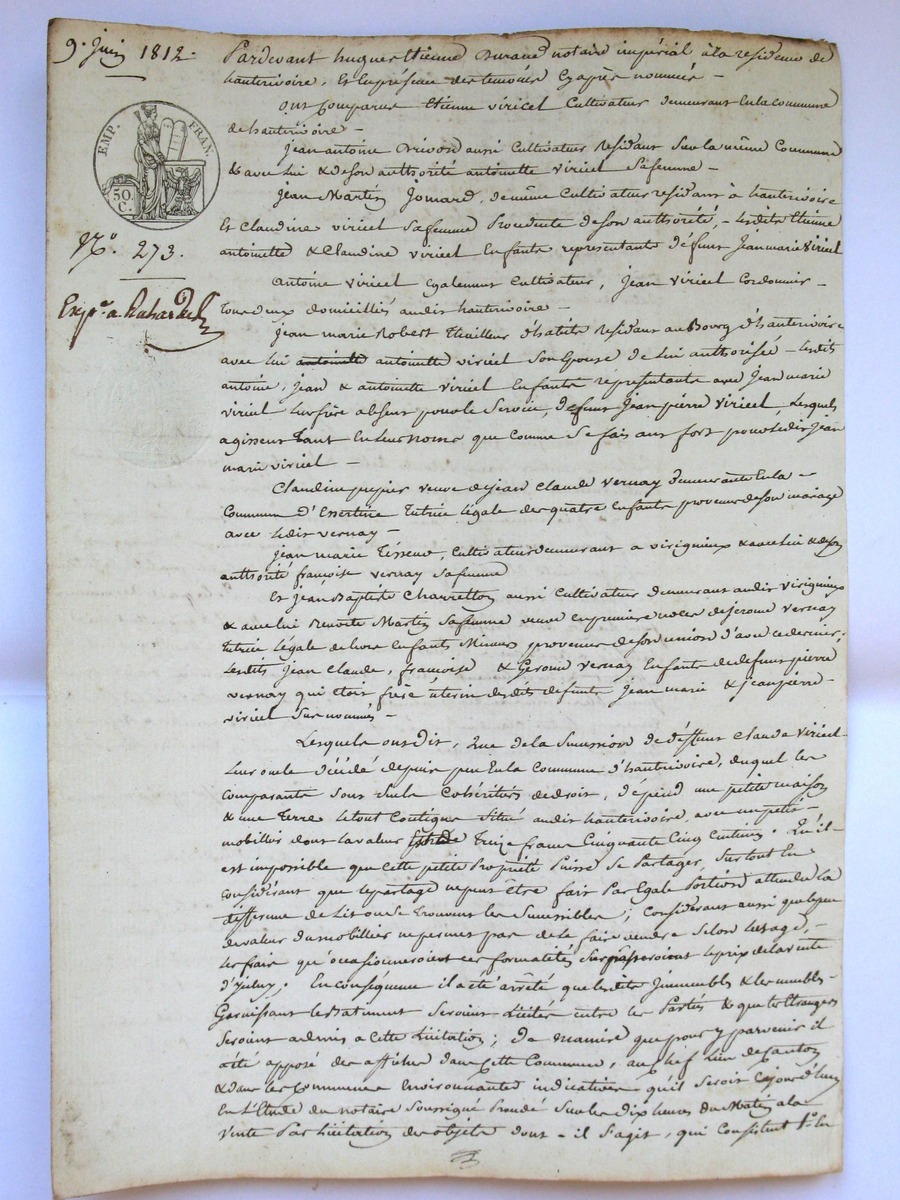 9. Juin 1812.
EMP. FRAN.
50. C.
N.° 273.
Pardevant hugues Etienne Durand notaire impérial à la residence de
hauterivoire, Et En présence des temoins Cy après nommés –
Ont Comparu Etienne viricel Cultivateur demeurant En la commune
de hauterivoire –
Jean antoine aussi Cultivateur Residant Sur la même Commune
& avec lui & de son authorité antoinette viricel Sa femme –
Jean Martin Jomard, de même Cultivateur residant à hauterivoire
Et Claudine viricel Sa femme Procedante de son authorité, – Lesdits Etienne
antoinette & Claudine viricel Enfants representants défunt Jean marie viricel
antoine viricel Egalement Cultivateur, Jean viricel Cordonnier –
tous deux domiciliés audit hauterivoire –
Jean marie Robert Tailleur d'habits Residant au Bourg d'hauterivoire
avec lui antoinette viricel Son Epouse de lui authorisée – Lesdits
antoine, Jean & antoinette viricel Enfants representants avec Jean marie
viricel Leur frère absent pour le Service, défunt Jean pierre viricel, Lesquels
agissent tant En leurs noms que Comme Se fais ant fort pour Ledit Jean
marie viricel –
Claudine pupier veuve de jean Claude vernay demeurante En la –
Commune d'Essertine tutrice légale des quatre enfants provenus de son mariage
avec ledit vernay –
Jean marie Tisseur, Cultivateur demeurant a virigneux & avec lui & de son
authorité françoise vernay Sa femme
Et Jean Baptiste Charretton aussi Cultivateur demeurant audit virigneux
& avec lui Benoite Martin Sa femme veuve En premiere noces de jerome vernay
tutrice légale de leurs Enfants Mineurs provenus de son union d'avec ce dernier;
Lesdits Jean Claude, françoise & Gerome vernay Enfants de defunt pierre
vernay qui étoit frère uterin desdits defunts Jean marie & jean pierre –
viricel Sus nommés –
Lesquels ont Dit, Que de la Succession de deffunt Claude viricel –
Leur oncle décédé depuis peu En la Commune d'hauterivoire, duquel les
comparants Sont Seuls Cohéritiers de droit, dépend une petite maison
& une Terre le tout Contigue Situé audit hauterivoire, avec un petit –
mobillier dont la valeur Treize francs Cinquante Cinq Centimes. Qu'il –
est impossible que Cette petite Propriété Puisse Se Partager, Surtout En
Considérant que le partage ne peut être fait Par Egale Portion attendu la
difference de Lit ou Se trouvent les Successibles; Considérant aussi que le peu
de valeur du mobillier ne permet pas de le faire vendre Selon l'usage, –
les frais qu'occasionneroient ces formalités Surpasseroient le prix de la vente
d'iceluy. En conséquence il a été arrêté que lesdits Immeubles & les meubles
Garnissant le Batiment Seroient licités entre les Parties & que les Etrangers
Seroient admis a Cette licitation; De maniere que pour y parvenir il
a été apposé des affiches dans Cette Commune, au chef lieu de Canton
& dans les Communes Environnantes indicatives qu'il Seroit Cejourd'huy
En L'Etude du notaire Soussigné Procédé Sur les Dix heures du Matin a la
vente Par licitation des objets dont – il S'agit, qui Consistent 1.° En